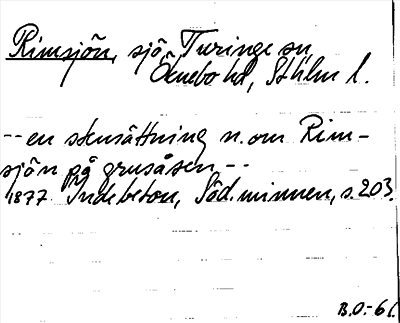 Rimsjön, sjö, Turinge sn,
Öknebo hd, Sthlm l.
-- en stensättning n. om Rim-
sjön på grusåsen --
1877 Indebetou, Söd. minnen, s. 203.
B.O.-61.